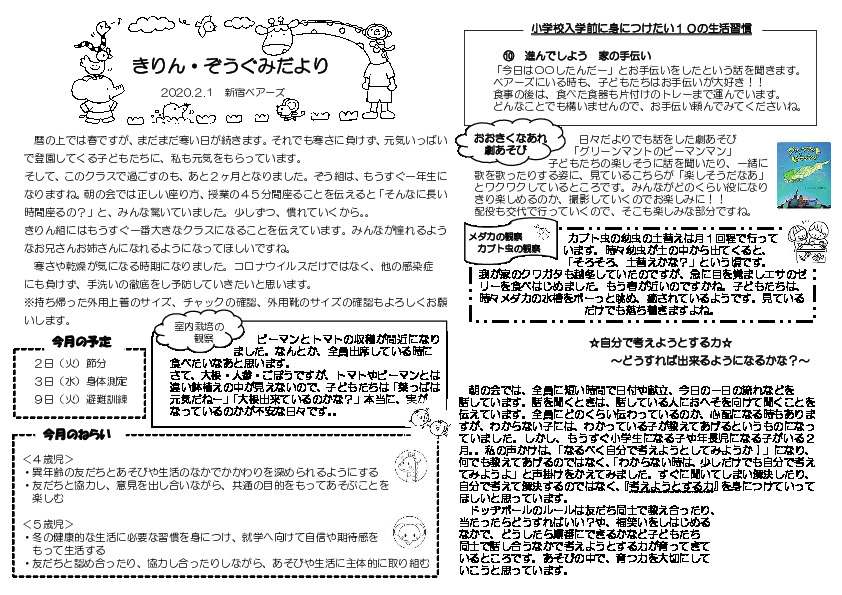 きりん・ぞうぐみだより
2020.2.1　新宿ベアーズ
暦の上では春ですが、まだまだ寒い日が続きます。それでも寒さに負けず、元気いっぱい
で登園してくる子どもたちに、私も元気をもらっています。
そして、このクラスで過ごすのも、あと２ヶ月となりました。ぞう組は、もうすぐ一年生に
なりますね。朝の会では正しい座り方、授業の４５分間座ることを伝えると「そんなに長い
時間座るの？」と、みんな驚いていました。少しずつ、慣れていくから。。
きりん組にはもうすぐ一番大きなクラスになることを伝えています。みんなが憧れるよう
なお兄さんお姉さんになれるようになってほしいですね。
寒さや乾燥が気になる時期になりました。コロナウイルスだけではなく、他の感染症
にも負けず、手洗いの徹底をし予防していきたいと思います。
※持ち帰った外用上着のサイズ、チャックの確認、外用靴のサイズの確認もよろしくお願
いします。
今月の予定
２日（火）節分
３日（水）身体測定
９日（火）避難訓練
室内栽培の
観察
ピーマンとトマトの収穫が間近になり
ました。なんとか、全員出席している時に
食べたいなあと思います。
さて、大根・人参・ごぼうですが、トマトやピーマンとは
違い鉢植えの中が見えないので、子どもたちは「葉っぱは
元気だねー」「大根出来ているのかな？」本当に、実が
なっているのかが不安な日々です。。
今月のねらい
＜４歳児＞
・異年齢の友だちとあそびや生活のなかでかかわりを深められるようにする
・友だちと協力し、意見を出し合いながら、共通の目的をもってあそぶことを
楽しむ
＜５歳児＞
・冬の健康的な生活に必要な習慣を身につけ、就学へ向けて自信や期待感を
もって生活する
・友だちと認め合ったり、協力し合ったりしながら、あそびや生活に主体的に取り組む
小学校入学前に身につけたい１０の生活習慣
⑩　進んでしよう　家の手伝い
「今日は〇〇したんだー」とお手伝いをしたという話を聞きます。
ベアーズにいる時も、子どもたちはお手伝いが大好き！！
食事の後は、食べた食器も片付けのトレーまで運んでいます。
どんなことでも構いませんので、お手伝い頼んでみてくださいね。
おおきくなあれ
劇あそび
日々だよりでも話をした劇あそび
「グリーンマントのピーマンマン」
子どもたちの楽しそうに話を聞いたり、一緒に
歌を歌ったりする姿に、見ているこちらが「楽しそうだなあ」
とワクワクしているところです。みんながどのくらい役になり
きり楽しめるのか、撮影していくのでお楽しみに！！
配役も交代で行っていくので、そこも楽しみな部分ですね。
メダカの観察
カブト虫の観察
カブト虫の幼虫の土替えは月１回程で行って
います。時々幼虫が土の中から出てくると、
「そろそろ、土替えかな？」という頃です。
我が家のクワガタも越冬していたのですが、急に目を覚ましエサのゼ
リーを食べはじめました。もう春が近いのですかね。子どもたちは、
時々メダカの水槽をボーっと眺め、癒されているようです。見ている
だけでも落ち着きますよね。
☆自分で考えようとする力☆
～どうすれば出来るようになるかな？～
朝の会では、全員に短い時間で日付や献立、今日の一日の流れなどを
話しています。話を聞くときは、話している人におへそを向けて聞くことを
伝えています。全員にどのくらい伝わっているのか、心配になる時もありま
すが、わからない子には、わかっている子が教えてあげるというものになっ
ていました。しかし、もうすぐ小学生になる子や年長児になる子がいる２
月。。私の声かけは、「なるべく自分で考えようとしてみようか！」になり、
何でも教えてあげるのではなく、「わからない時は、少しだけでも自分で考え
てみようよ」と声掛けをかえてみました。すぐに聞いてしまい解決したり、
自分で考えて解決するのではなく、『考えようとする力』を身につけていって
ほしいと思っています。
ドッヂボールのルールは友だち同士で教え合ったり、
当たったらどうすればいい？や、椅笑いをしはじめる
なかで、どうしたら順番にできるかなど子どもたち
同士で話し合うなかで考えようとする力が育ってきて
いるところです。あそびの中で、育つ力を大切にして
いこうと思っています。